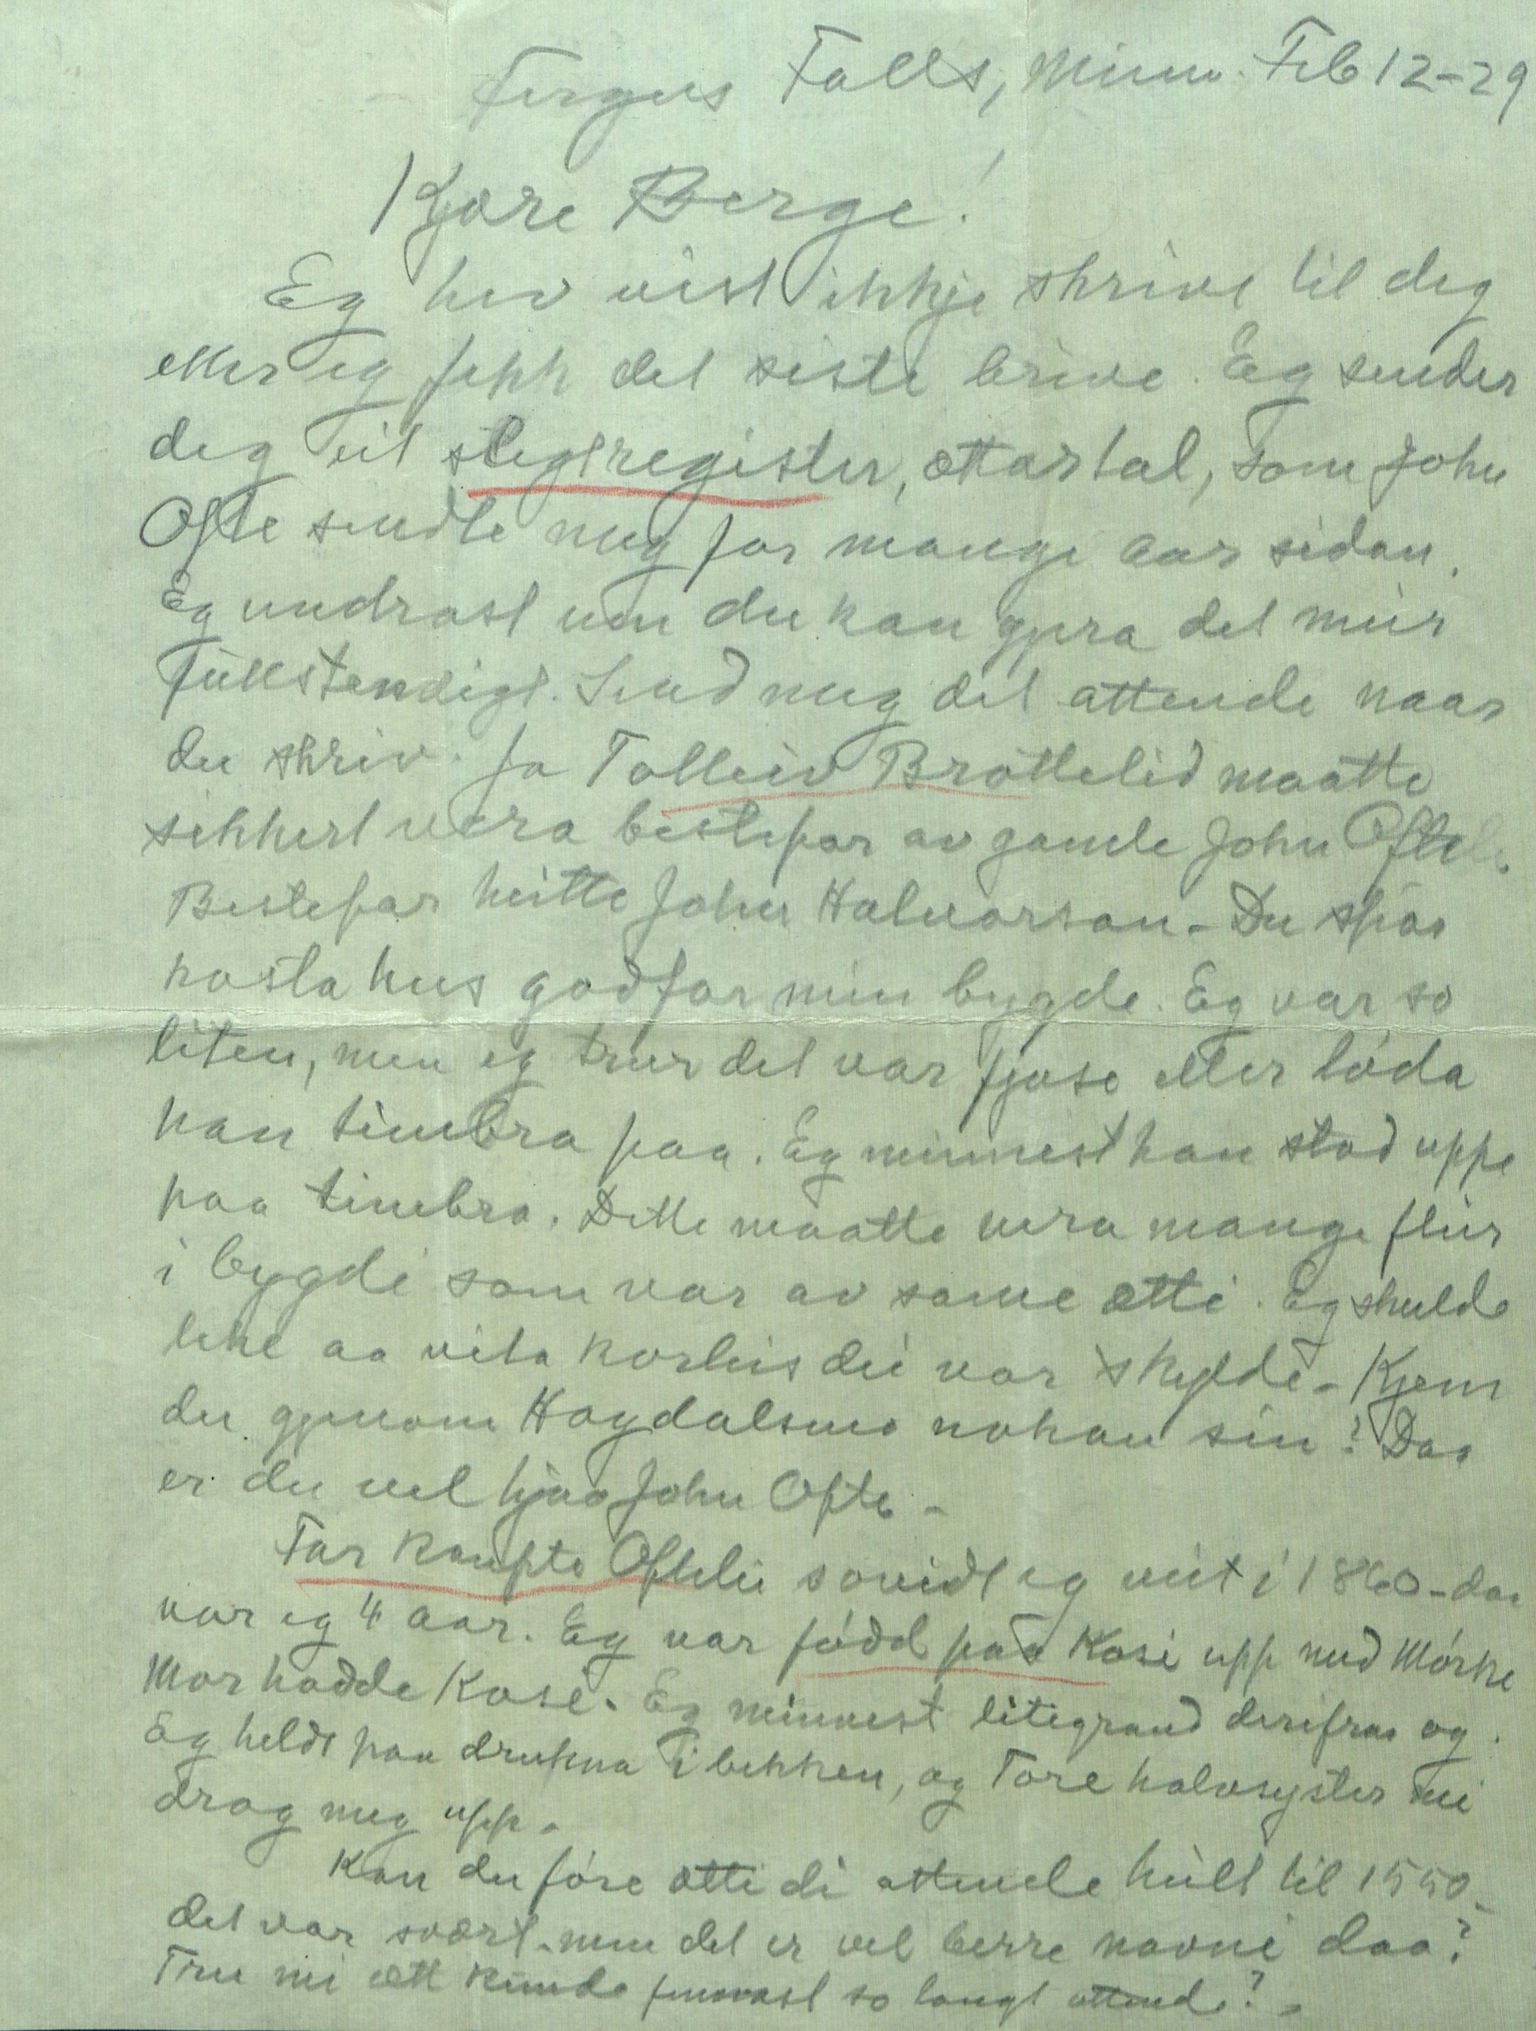 Fergus Falls, Minn. Feb 12-29
Kjære Berge!
Eg hev vist ikkje skrive til deg
etter eg fekk det siste brive. Eg sender
deg eit slegtregister, ættartal, som John
Ofte sendte meg for mange aar sidan.
Eg undrast um du kan gjera det meir
fullstendigt. Send meg det attende naar
du skriv. Ja Tolleiv Bróttelid maatte
sikkert vera bestefar av gamle John Ofteli.
Bestefar heitte John Halvorson - Du spår
kosta hus godfar min bygde. Eg var so
liten, men eg trur det var fjose eller lóda
han timbra paa. Eg minnest han stod uppe
paa timbra. Dette maatte vera mange fleir
i bygdi som var av same ætti. Eg skulde
like aa vita korleis dei var skylde - Kjem
du gjenom Høgdalsmo nokan sin? Daa
er du vel hjaa John Ofte -
Far kaupte Oftelii sovidt eg veit i 1860 - daa
var eg 4 aar. Eg var fódd paa Kosi upp med Mórke
Mor hadde Kosi. Eg minnest litegrand derifraa og
Eg heldt paa drukna i bekken, og Tore halvsyster mi
drog meg upp.
Kan du fóre ætti di attende heilt til 1550 -
det var svært. men det er vel berre navni daa?
Tru mi ætt kunde finnast so langt attende? -